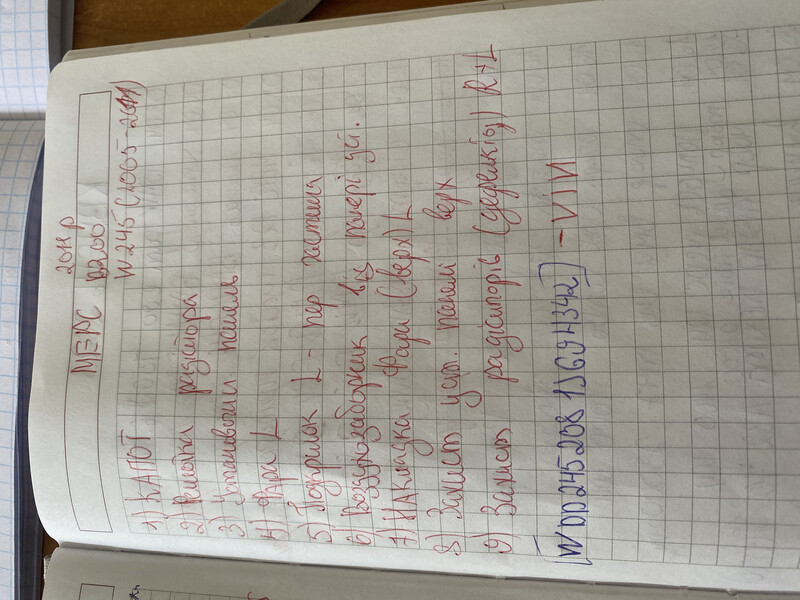 МЕРС 2011р
B200
W245 (2005-2011)
1) КАПОТ
2) Решітка радіатора
3) Установочні панель
4) Фара L
5) Подкрилок L - пер частина
6) Воздухозаборник від панелі усі.
7) Накладка Фари (верх) L
8) Захист усил. панелі верх
9) Захист радіаторів (дефлектор) R+L
[WDD2452081J694342] - VIN